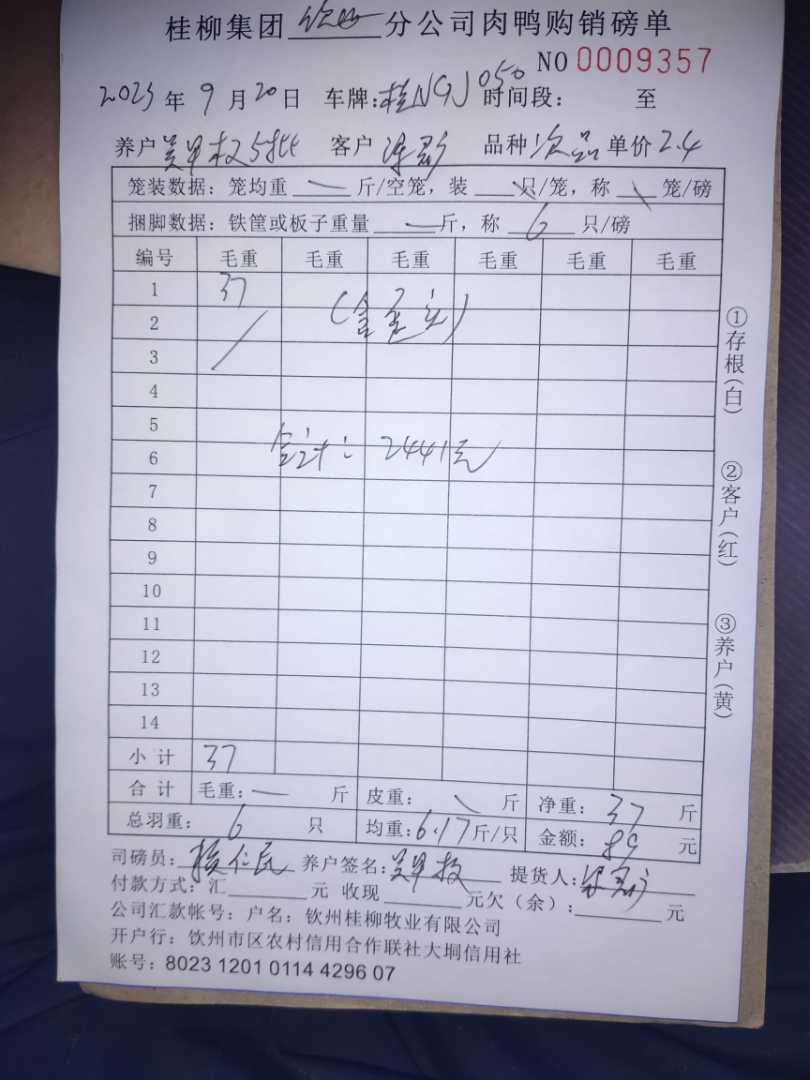 桂柳集团 钦州 分公司肉鸭购销磅单
NO 0009357
2023 年 9 月 20 日 车牌: 桂N9J050 时间段: 至
养户 5批 客户 品种 次品 单价 2.4
笼装数据: 笼均重 — 斤/空笼, 装 \ 只/笼, 称 \ 笼/磅
捆脚数据: 铁筐或板子重量 — 斤, 称 6 只/磅
编号 毛重 毛重 毛重 毛重 毛重 毛重
1 37
2
3
4
5
合计: 2441元
6
7
8
9
10
11
12
13
14
小计 37
合计 毛重: — 斤 皮重: \ 斤 净重: 37 斤
总羽重: 6 只 均重: 6.17 斤/只 金额: 89 元
司磅员: 仁民 养户签名: 提货人:
付款方式: 汇 元 收现 元欠(余): 元
公司汇款帐号: 户名: 钦州桂柳牧业有限公司
开户行: 钦州市区农村信用合作联社大垌信用社
账号: 8023 1201 0114 4296 07
①存根(白)
②客户(红)
③养户(黄)